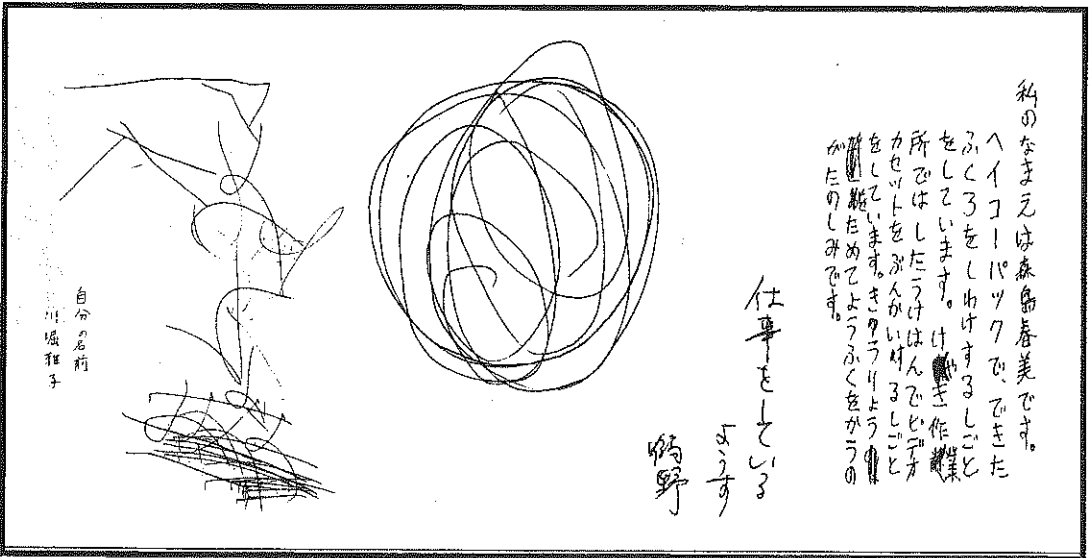 私のなまえは森島春美です。
ヘイコーパックで、できた
ふくろをしわけするしごと
をしています。けやき作業
所ではしたうけはんでビデオ
カセットをぶんかいするしごと
をしています。きゅうりょう
ためてようふくをかうの
がたのしみです。
仕事をしている
ようす
野
自分の名前
川堀雅子